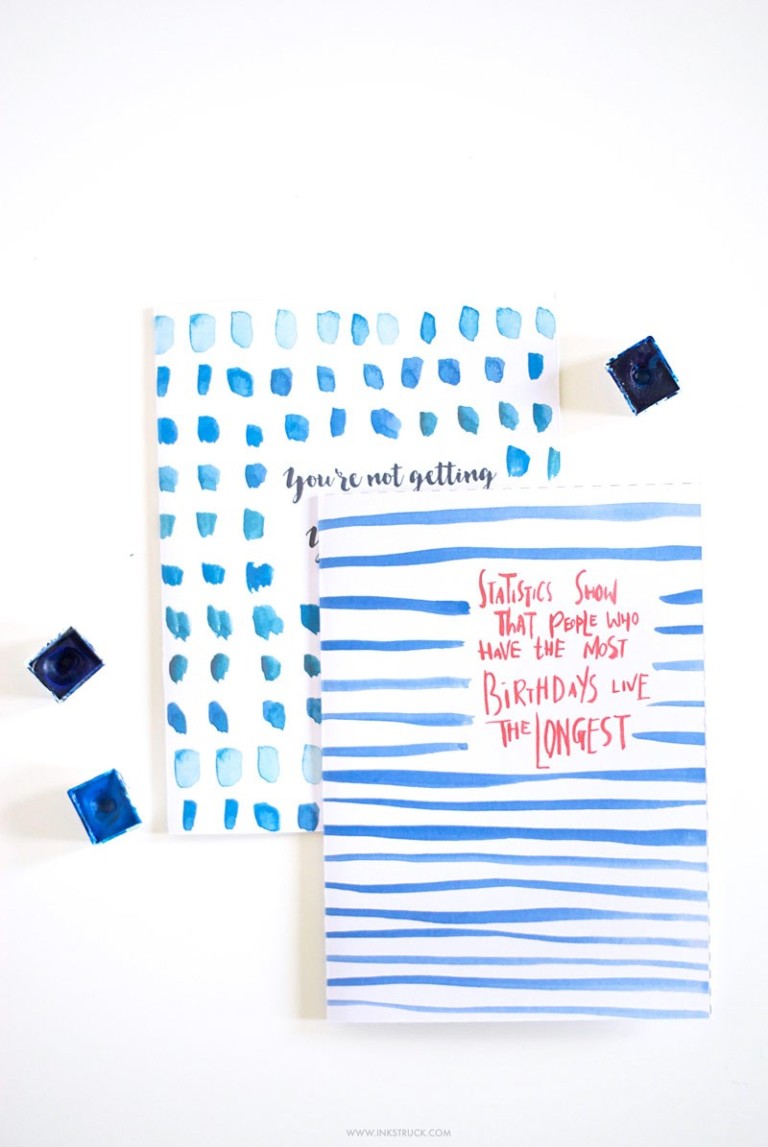 You're not getting
STATISTICS SHOW
THAT PEOPLE WHO
HAVE THE MOST
BIRTHDAYS LIVE
THE LONGEST
WWW.INKSTRUCK.COM